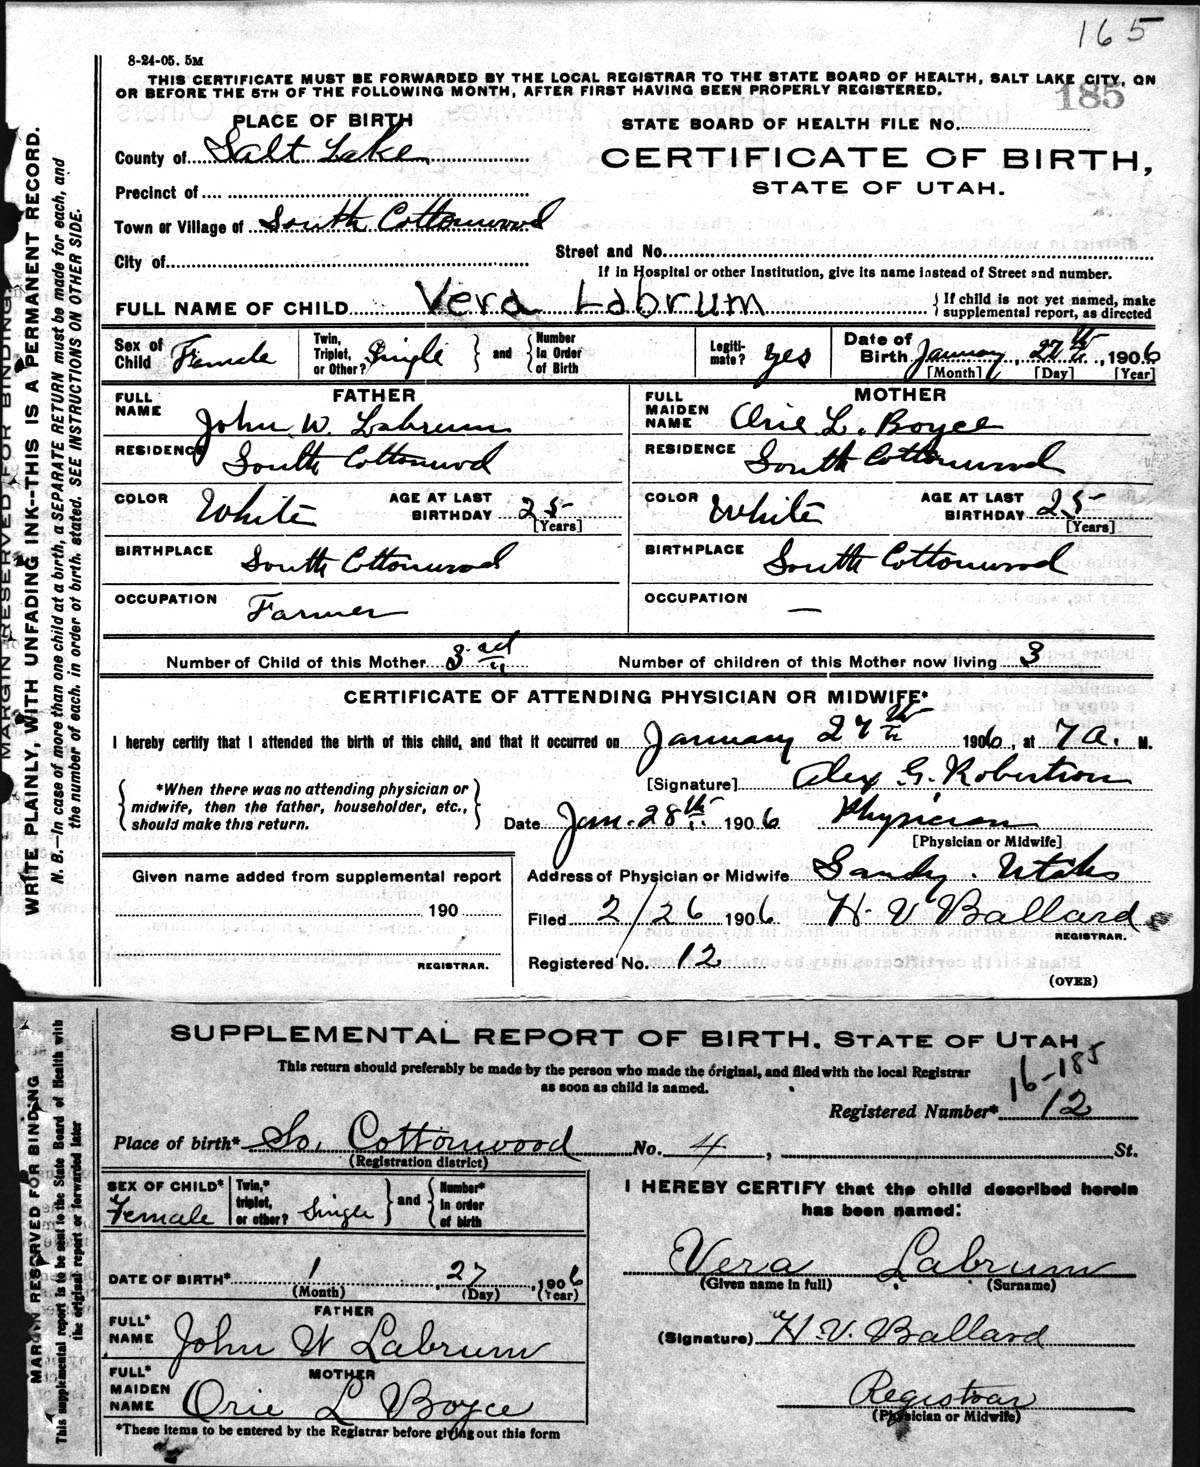 165
8-24-05. 5M
THIS CERTIFICATE MUST BE FORWARDED BY THE LOCAL REGISTRAR TO THE STATE BOARD OF HEALTH, SALT LAKE CITY, ON
OR BEFORE THE 5TH OF THE FOLLOWING MONTH, AFTER FIRST HAVING BEEN PROPERLY REGISTERED.
185
PLACE OF BIRTH
STATE BOARD OF HEALTH FILE No.
County of Salt Lake
CERTIFICATE OF BIRTH,
STATE OF UTAH.
Precinct of
Town or Village of South Cottonwood
City of
Street and No.
If in Hospital or other Institution, give its name instead of Street and number.
FULL NAME OF CHILD Vera Labrum { If child is not yet named, make
supplemental report, as directed
Sex of Child Female
Twin, Triplet, or Other? Single } and { Number in Order of Birth
Legiti-mate? yes
Date of Birth January, 27th, 1906
[Month] [Day] [Year]
FATHER
FULL NAME John W. Labrum
RESIDENCE South Cottonwood
COLOR White AGE AT LAST BIRTHDAY 25 [Years]
BIRTHPLACE South Cottonwood
OCCUPATION Farmer
MOTHER
FULL MAIDEN NAME Orie L. Boyce
RESIDENCE South Cottonwood
COLOR White AGE AT LAST BIRTHDAY 25 [Years]
BIRTHPLACE South Cottonwood
OCCUPATION —
Number of Child of this Mother 3rd
Number of children of this Mother now living 3
CERTIFICATE OF ATTENDING PHYSICIAN OR MIDWIFE*
I hereby certify that I attended the birth of this child, and that it occurred on January 27th 1906, at 7 a. M.
{ *When there was no attending physician or
midwife, then the father, householder, etc.,
should make this return. }
[Signature] Alex G. Robertson
Date Jan. 28th 1906 Physician
[Physician or Midwife]
Given name added from supplemental report
190
REGISTRAR.
Address of Physician or Midwife Sandy. Utah
Filed 2/26 1906 H. V. Ballard
REGISTRAR.
Registered No. 12
(OVER)
MARGIN RESERVED FOR BINDING
WRITE PLAINLY, WITH UNFADING INK--THIS IS A PERMANENT RECORD.
N. B.—In case of more than one child at a birth, a SEPARATE RETURN must be made for each, and
the number of each, in order of birth, stated. SEE INSTRUCTIONS ON OTHER SIDE.
SUPPLEMENTAL REPORT OF BIRTH, STATE OF UTAH
This return should preferably be made by the person who made the original, and filed with the local Registrar
as soon as child is named.
16-185
Registered Number* 12
Place of birth* So. Cottonwood No. 4, St.
(Registration district)
SEX OF CHILD* Female
Twin,* triplet, or other? Single } and { Number* in order of birth
DATE OF BIRTH* 1 27 1906
(Month) (Day) (Year)
FATHER
FULL* NAME John W Labrum
MOTHER
FULL* MAIDEN NAME Orie L Boyce
*These items to be entered by the Registrar before giving out this form
I HEREBY CERTIFY that the child described herein
has been named:
Vera Labrum
(Given name in full) (Surname)
(Signature) H. V. Ballard
Registrar
(Physician or Midwife)
MARGIN RESERVED FOR BINDING
This supplemental report is to be sent to the State Board of Health with
the original report or forwarded later